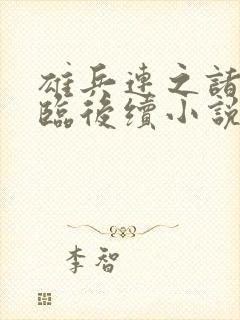 雄兵連之諸
臨後續小說
李智